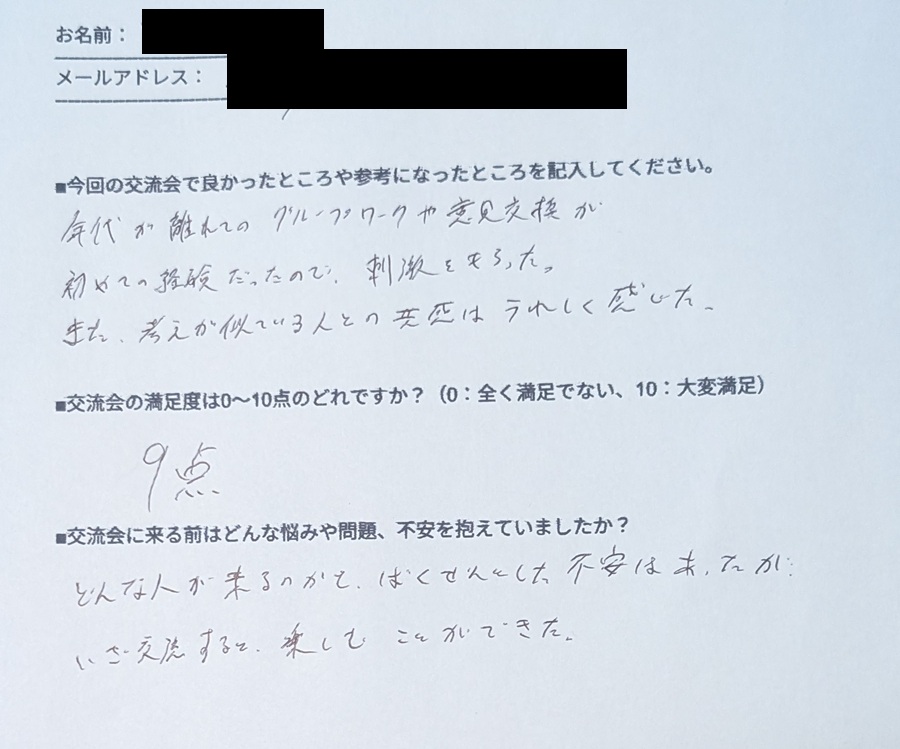 お名前：
メールアドレス：
■今回の交流会で良かったところや参考になったところを記入してください。
年代が離れてのグループワークや意見交換が
初めての経験だったので、刺激をもらった。
また、考えが似ている人との共感はうれしく感じた。
■交流会の満足度は0～10点のどれですか？（0：全く満足でない、10：大変満足）
9点
■交流会に来る前はどんな悩みや問題、不安を抱えていましたか？
どんな人が来るのかと、ばくぜんとした不安はあったが、
いざ交流すると、楽しむことができた。